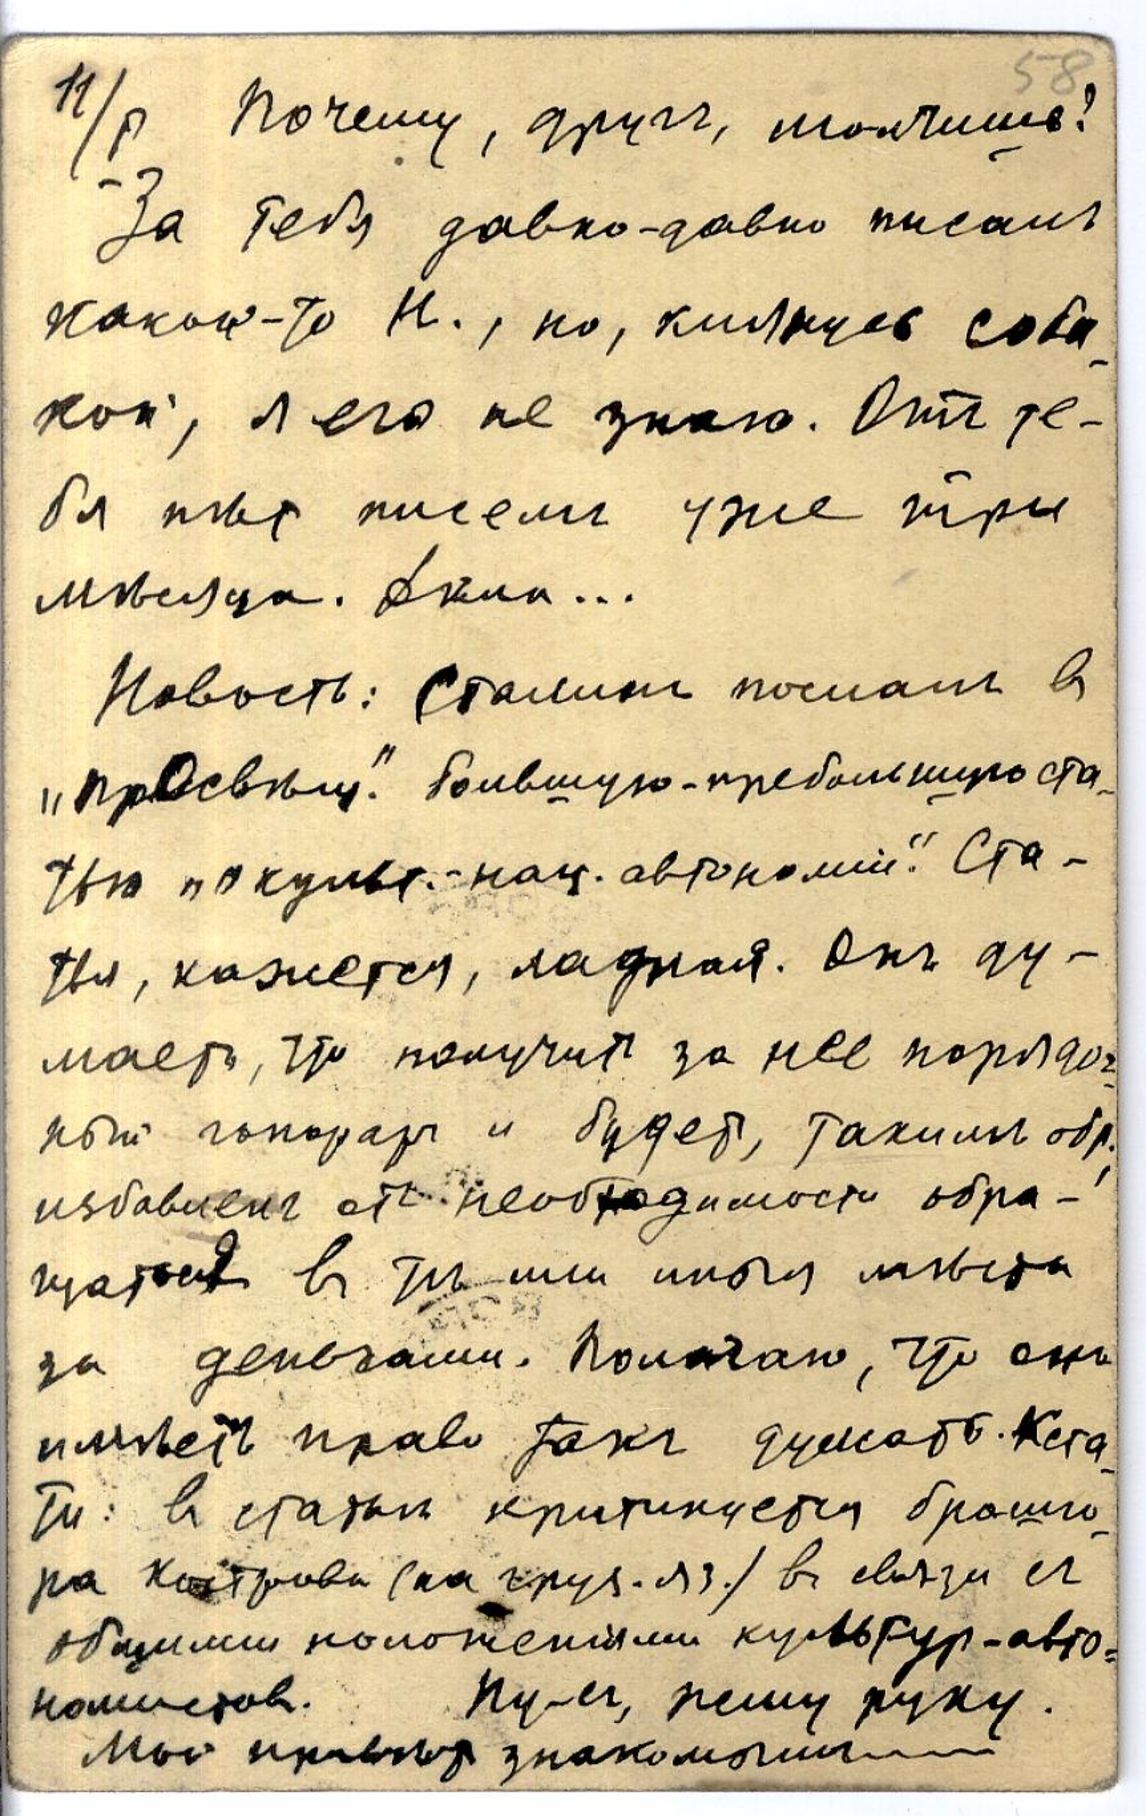 58
11/р Почему, другъ, молчишь?
За тебя давно-давно писалъ
какой-то Н., но, клянусь соба-
кой, я его не знаю. Отъ те-
бя нѣт писемъ уже три
мѣсяца. Дѣла...
Новость: Сталинъ послалъ въ
„Просвѣщ." большую-пребольшую ста-
тью „о культ.-нац. автономіи". Ста-
тья, кажется, ладная. Онъ ду-
маетъ, что получитъ за нее порядоч-
ный гонораръ и будетъ, такимъ обр.,
избавленъ отъ необходимости обра-
щаться въ тѣ или иныя мѣста
за деньгами. Полагаю, что онъ
имѣетъ право такъ думать. Кста-
ти: въ статьѣ критикуется брошю-
ра Кострова (на груз. яз.) въ связи съ
общими положеніями культур-авто-
номистов. Ну-съ, жму руку.
Мой привѣтъ знакомымъ